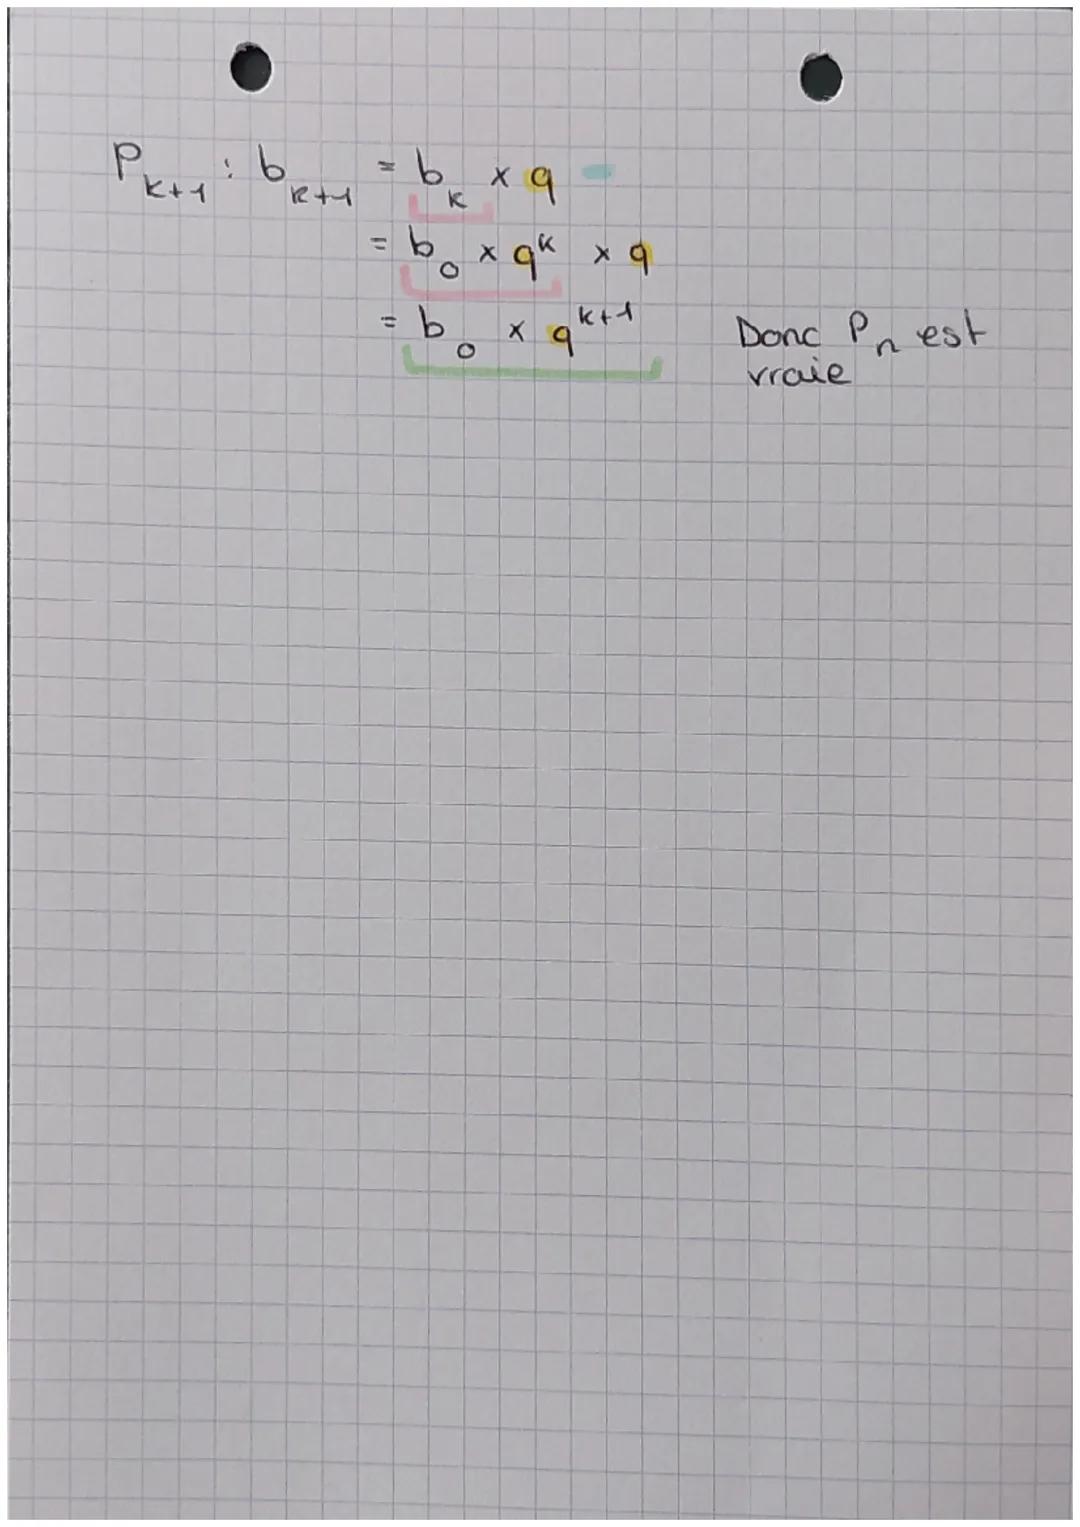 P_{k+1} : b_{k+1} = b_k × q
= b_0 × q^k × q
= b_0 × q^{k+1} Donc P_n est
vraie